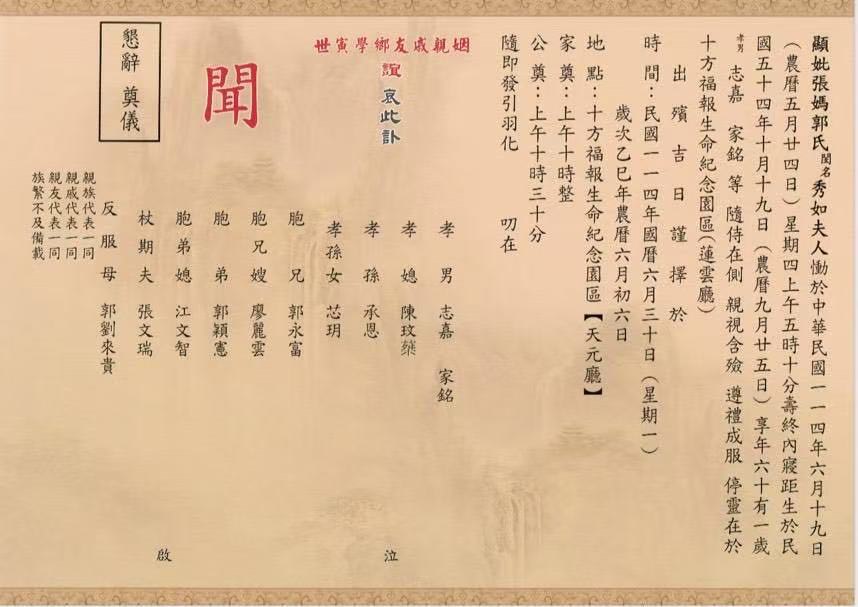 顯妣張媽郭氏閨名秀如夫人慟於中華民國一一四年六月十九日
（農曆五月廿四日）星期四上午五時十分壽終內寢距生於民
國五十四年十月十九日（農曆九月廿五日）享年六十有一歲
孝男 志嘉 家銘 等 隨侍在側 親視含殮 遵禮成服 停靈在於
十方福報生命紀念園區(蓮雲廳)
出殯吉日謹擇於
時間：民國一一四年國曆六月三十日（星期一）
歲次乙巳年農曆六月初六日
地點：十方福報生命紀念園區【天元廳】
家奠：上午十時整
公奠：上午十時三十分
隨即發引羽化 叨在
姻親戚友鄉學寅世
誼 哀此訃
聞
懇辭 奠儀
孝男 志嘉 家銘
孝媳 陳玟蘂
孝孫 承恩
孝孫女 芯玥
胞兄 郭永富
胞兄嫂 廖麗雲
胞弟 郭穎憲
胞弟媳 江文智
杖期夫 張文瑞
反服母 郭劉來貴
親族代表一同
親戚代表一同
親友代表一同
族繁不及備載
泣
啟